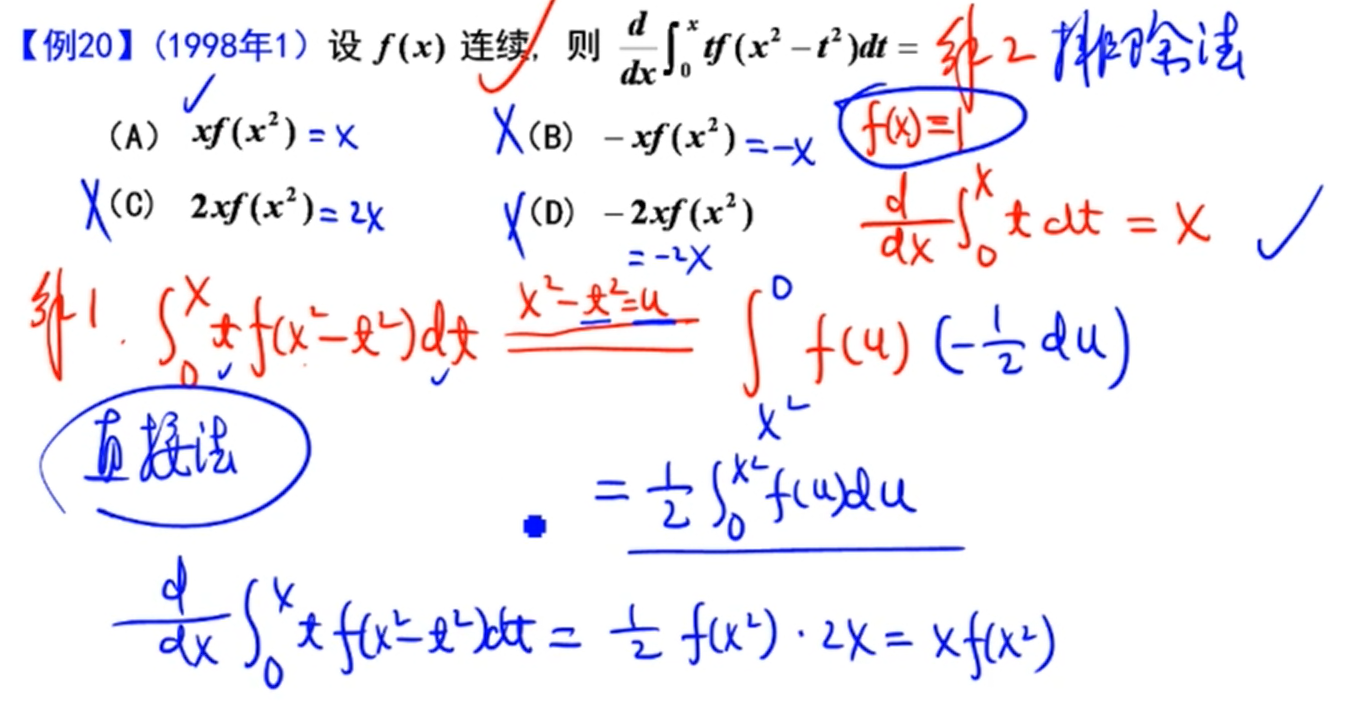 【例20】(1998年1) 设 f(x) 连续, 则 d/dx ∫₀ˣ tf(x² − t²)dt = 解2 排除法
(A) xf(x²) = x (B) − xf(x²) = −x f(x)=1
(C) 2xf(x²) = 2x (D) − 2xf(x²) = −2x d/dx ∫₀ˣ t dt = x
解1. ∫₀ˣ t f(x²−t²)dt x²−t²=u ∫_{x²}^0 f(u) (−1/2 du)
直接法
= 1/2 ∫_0^{x²} f(u)du
d/dx ∫₀ˣ t f(x²−t²)dt = 1/2 f(x²) · 2x = x f(x²)